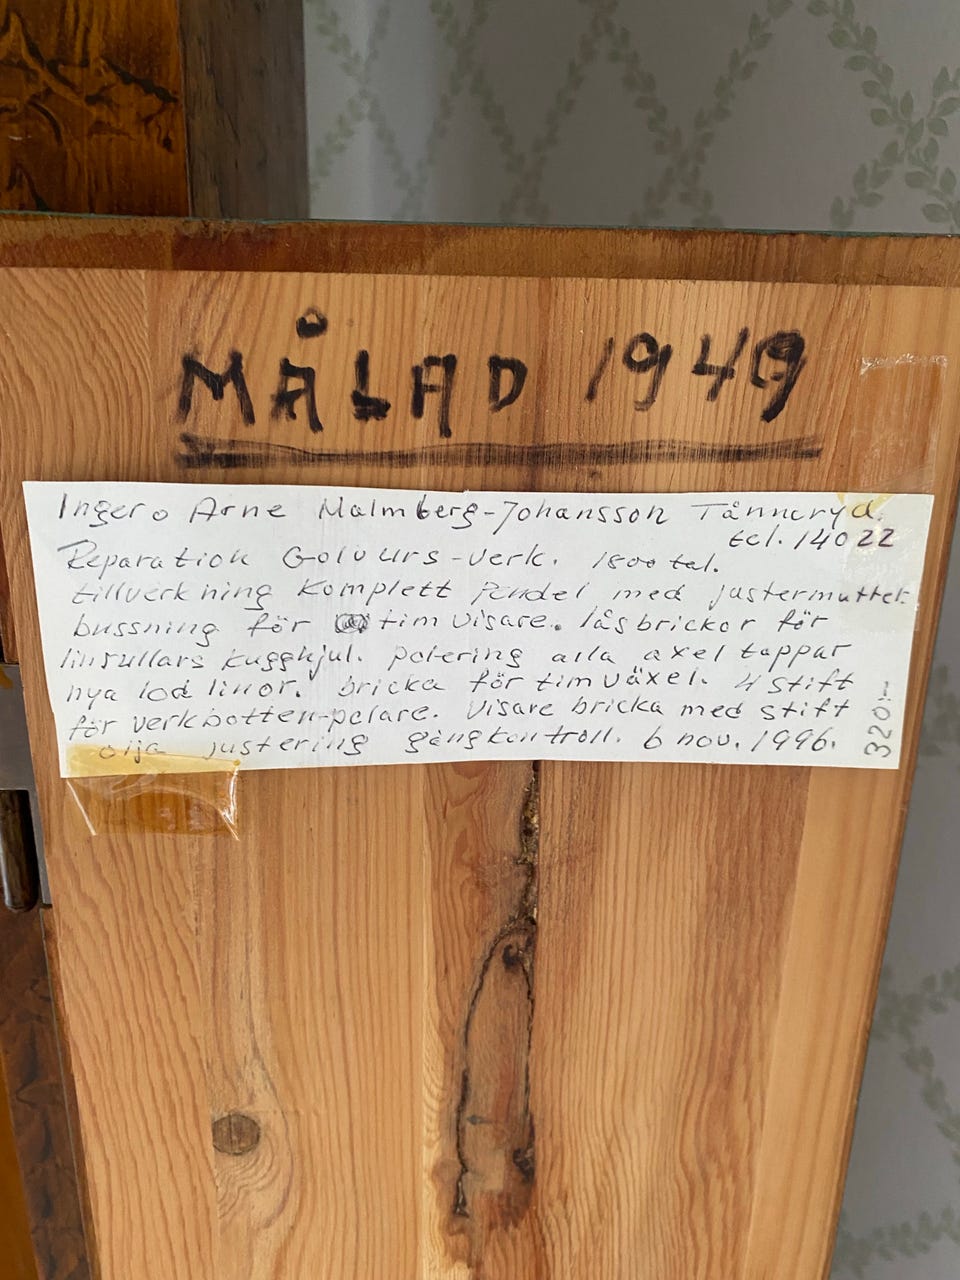 MÅLAD 1949
Inger o Arne Malmberg-Johansson Tånneryd.
tel. 14022
Reparation Golvurs-verk. 1800 tal.
tillverkning komplett Pendel med justermutter.
bussning för timvisare. låsbrickor för
linrullars kugghjul. polering alla axel tappar
nya lod linor. bricka för timväxel. 4 stift
för verkbotten-pelare. visare bricka med stift
olja justering gångkontroll. 6 nov. 1996.
320:-